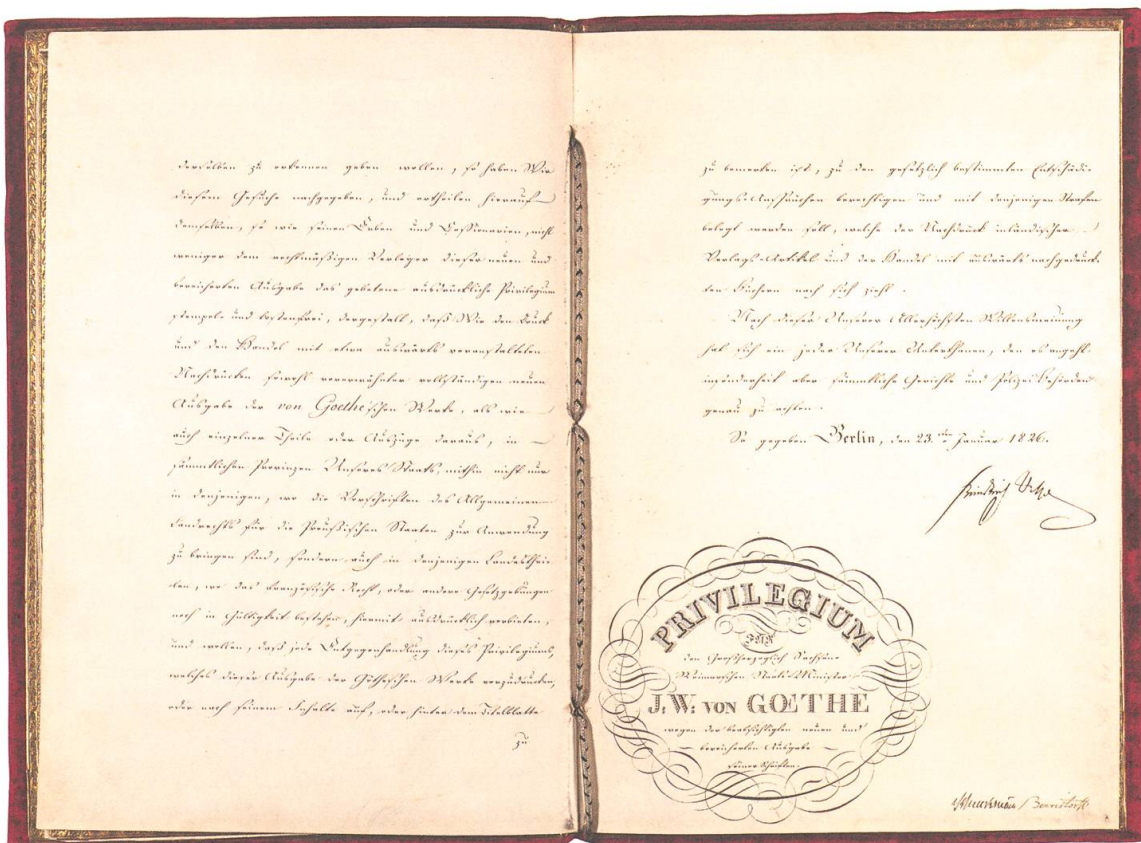 derselben zu erkennen geben wollen, so haben Wir
diesem Gesuche nachgegeben, und ertheilen hierauf
demselben, so wie seinen Erben und Cessionarien, nicht
weniger dem rechtmäßigen Verleger dieser neuen und
bereicherten Ausgabe das gebetene ausdrückliche Privilegium
stempel- und kostenfrei, dergestalt, daß Wir den Druck
und den Handel mit etwa auswärts veranstalteten
Nachdrücken sowohl vorerwähnter vollständigen neuen
Ausgabe der von Goethe'schen Werke, als wie
auch einzelner Theile oder Auszüge daraus, in
sämmtlichen Provinzen Unseres Staats, mithin nicht nur
in denjenigen, wo die Vorschriften des Allgemeinen
Landrechts für die Preußischen Staaten zur Anwendung
zu bringen sind, sondern auch in denjenigen Landesthei-
len, wo das Französische Recht, oder andere Gesetzgebungen
noch in Gültigkeit bestehen, hiermit ausdrücklich verbieten,
und wollen, daß jede Entgegenhandlung dieses Privilegiums,
welches dieser Ausgabe der Göthe'schen Werke vorzudrucken,
oder nach seinem Inhalte auf, oder hinter dem Titelblatte
zu
zu bemerken ist, zu den gesetzlich bestimmten Entschädi-
gungs-Ansprüchen berechtigen und mit denjenigen Strafen
belegt werden soll, welche der Nachdruck inländischer
Verlags-Artikel und der Handel mit auswärts nachgedruck-
ten Büchern nach sich zieht.
Nach dieser Unserer Allerhöchsten Willensmeinung
hat sich ein jeder Unserer Unterthanen, den es angeht,
insonderheit aber sämmtliche Gerichte und Polizei-Behörden
genau zu achten.
So gegeben Berlin, den 23. ten Januar 1826.
Friedrich Wilhelm
PRIVILEGIUM
FÜR
den Großherzoglich Sachsen-
Weimarschen Staats-Minister
J. W. VON GŒTHE
wegen der beabsichtigten neuen und
bereicherten Ausgabe
seiner Schriften.
Schuckmann / Bernstorff